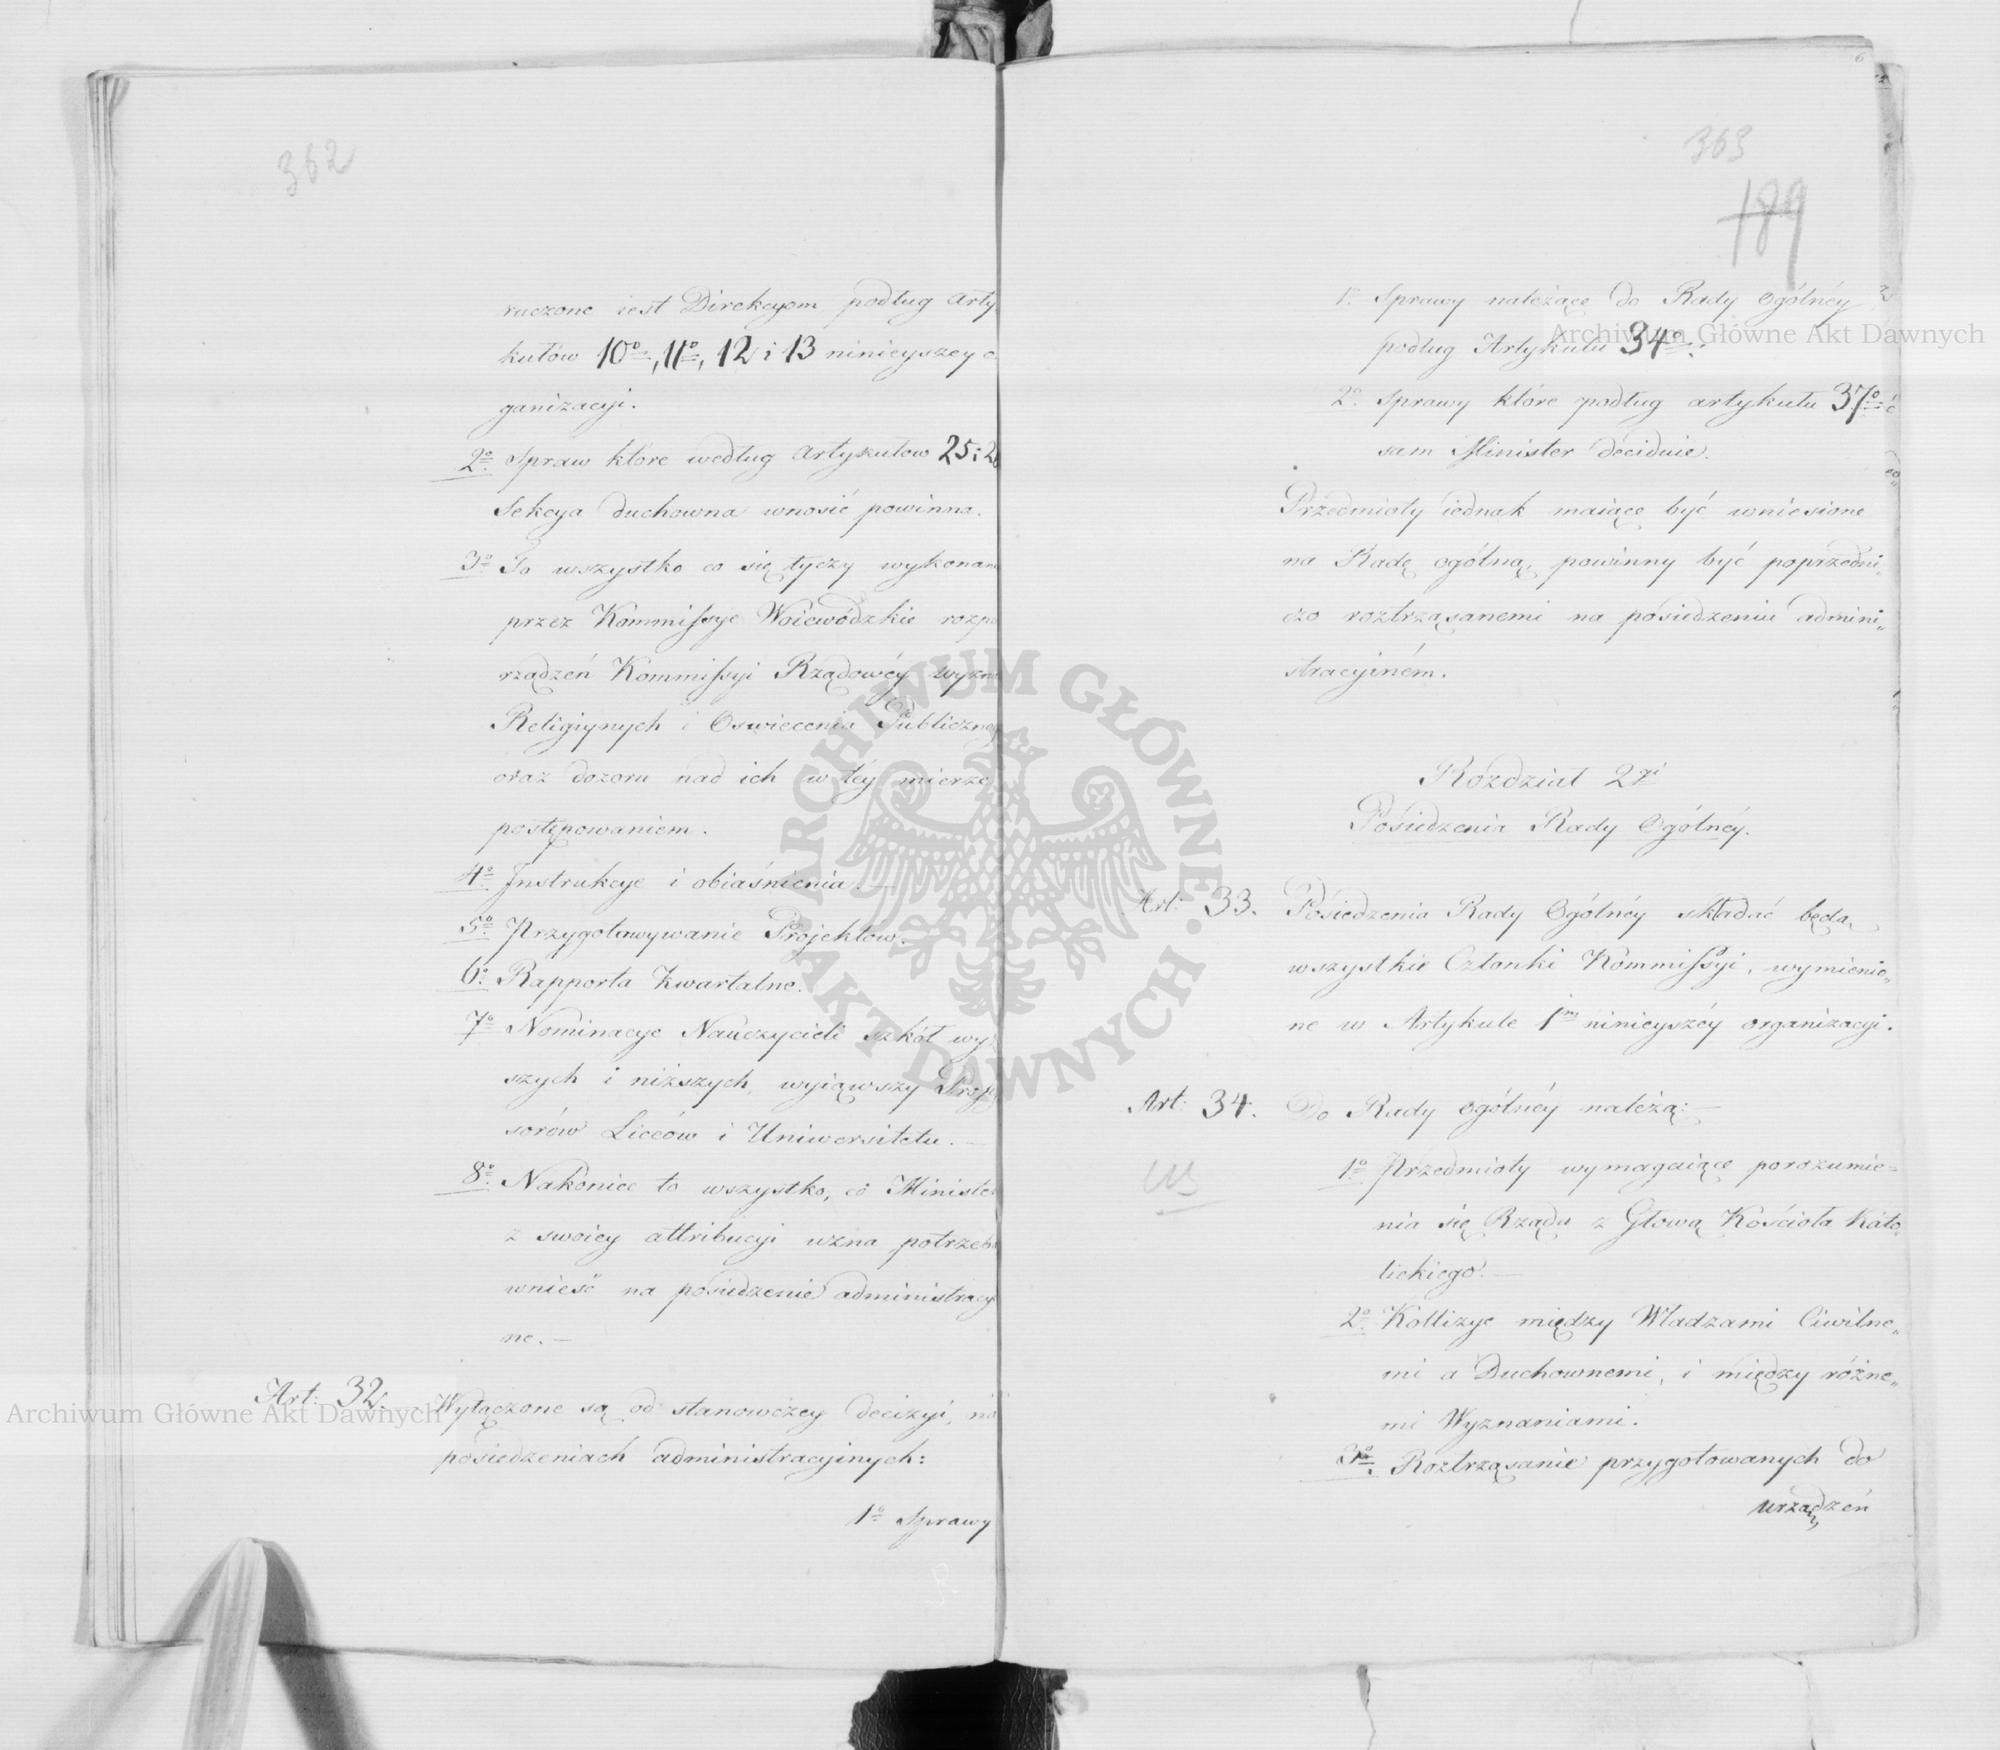 362
ruczone iest Direkcyom podług Arty
kułów 10º, 11º, 12 i 13 ninieyszey
ganizacyi.
2º Spraw które według Artykułow 25 i
Sekcya duchowna wnosić powinna.
3º To wszystko co się tyczy wykonan
przez Kommissye Woiewódzkie rozpo
rządzeń Kommissyi Rządowéy wyzn
Religiynych i Oswiecenia Publiczneg
oraz dozoru nad ich w téy mierze
postępowaniem.
4º Instrukcye i obiaśnienia. —
5º Przygotowywanie Projektow.
6º Rapporta Kwartalne.
7º Nominacye Nauczycieli szkół wy
szych i niższych, wyiąwszy Prof
sorów Liceów i Uniwersitetu. —
8º Nakoniec to wszystko, co Ministe
z swoiey attribucyi uzna potrzeb
wnieść na posiedzenie administracy
ne. —
Art: 32. Wyłączone są od stanowczey decizyi, na
posiedzeniach administracyinych:
1º Sprawy
6
363
189
1º Sprawy należące do Rady Ogólnéy
podług Artykułu 34º.
2º Sprawy które podług artykułu 37º
sam Minister déciduie.
Przedmioty iednak maiące być wniesione
na Radę ogólną, powinny być poprzedni„
czo roztrząsanemi na posiedzeniu admini„
stracyiném.
Rozdział 2gi
Posiedzenia Rady Ogólnéy.
Art: 33. Posiedzenia Rady Ogólnéy składać będą
wszystkie Członki Kommissyi, wymienio„
ne w Artykule 1m ninieyszéy organizacyi.
Art: 34. Do Rady ogólnéy należą: —
1º Przedmioty wymagaiące porozumie=
nia się Rządu z Głową Kościoła Kato„
lickiego. —
2º Kollizye między Władzami Ciwilne„
mi a Duchownemi, i między różne„
mi Wyznaniami.
3º Roztrząsanie przygotowanych do
urządzeń
Archiwum Główne Akt Dawnych
Archiwum Główne Akt Dawnych
ARCHIWUM GŁÓWNE AKT DAWNYCH